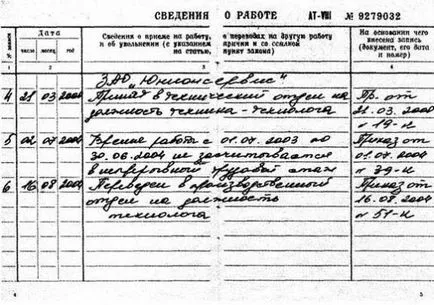 СВЕДЕНИЯ О РАБОТЕ АТ-VIII № 9279032
№ записи
Дата
число месяц год
Сведения о приеме на работу, о переводах на другую работу
и об увольнении (с указанием причин и со ссылкой
на статью, пункт закона)
На основании чего
внесена запись
(документ, его дата
и номер)
1 2 3 4
ЗАО "Юнионсервис"
4 21 03 2000 Принят в технический отдел на Пр. от
должность техника-технолога 21.03.2000
№ 19-к
5 02 07 2004 Время работы с 01.07.2003 по Приказ от
30.06.2004 не засчитывается 01.07.2004
в непрерывный трудовой стаж № 39-к
6 16 08 2004 Переведен в производственный Приказ от
отдел на должность 16.08.2004
технолога № 51-к
4 5